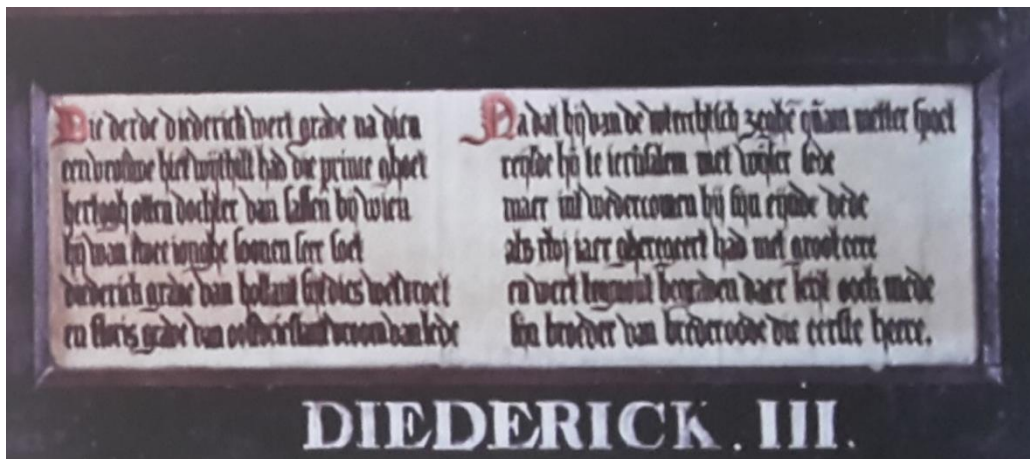 Die derde diederich wert grave na dien
een vrouwe hiet wijthilt had die prince ghoet
hertogh otten dochter van sassen bij wien
hij wan twee ionghe soonen seer soet
diederich grave van hollant sijt dies wel vroet
en floris grave van oostvrieslant vroom van lede
Nadat hij van de wterchtsch zeghe quam metter spoet
reijsde hij te ierusalem met wijser sede
maer int wedercomen hij sijn eijnde dede
als xlvj iaer gheregeert had met groot eere
en wert begraven daer leijt oock mede
sijn broeder van brederoode die eerste heere.
DIEDERICK. III.